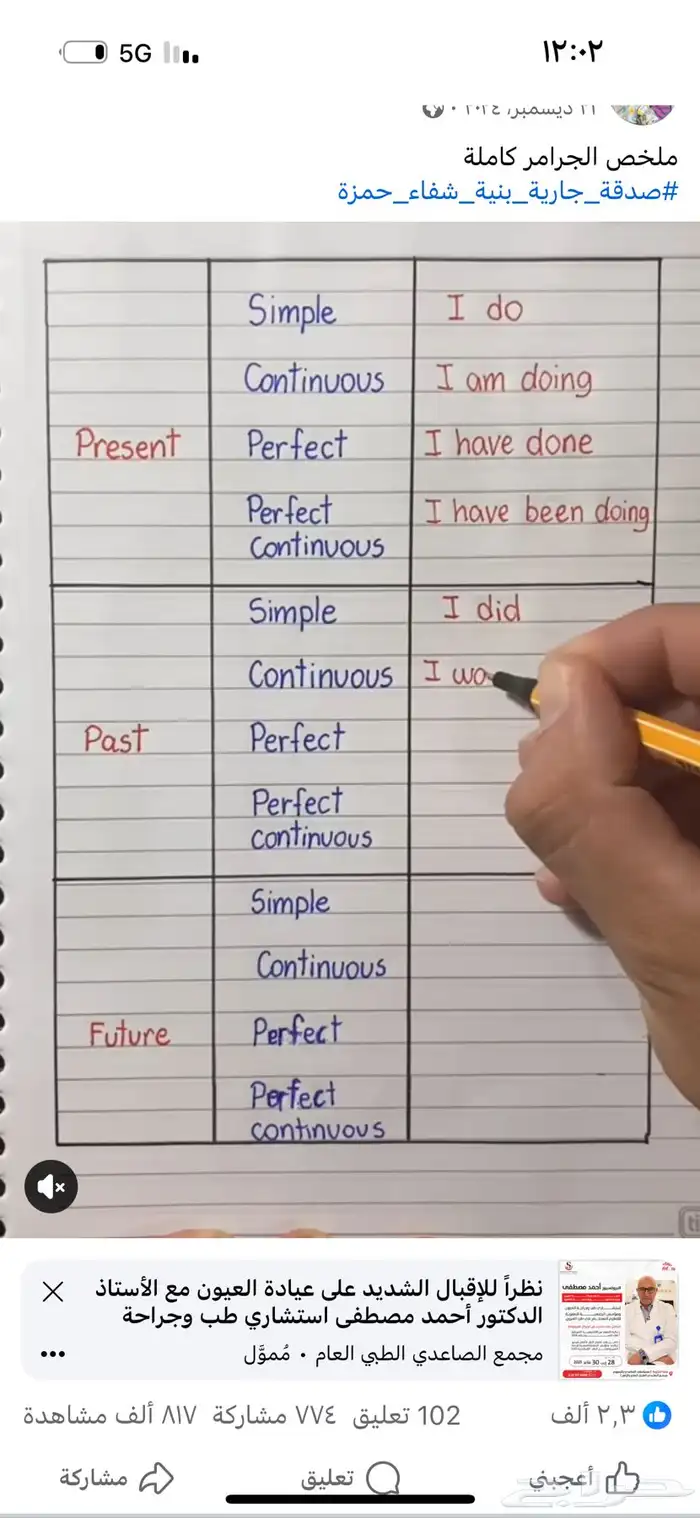 5G
١٢:٠٢
٢١ ديسمبر، ٢٠٢٤
ملخص الجرامر كاملة
#صدقة_جارية_بنية_شفاء_حمزة
Simple I do
Continuous I am doing
Present Perfect I have done
Perfect I have been doing
continuous
Simple I did
Continuous I wa
Past Perfect
Perfect
continuous
Simple
Continuous
Future Perfect
Perfect
continuous
نظراً للإقبال الشديد على عيادة العيون مع الأستاذ
الدكتور أحمد مصطفى استشاري طب وجراحة
مجمع الصاعدي الطبي العام · مُموَّل
٢,٣ ألف 102 تعليق ٧٧٤ مشاركة ٨١٧ ألف مشاهدة
أعجبني تعليق مشاركة